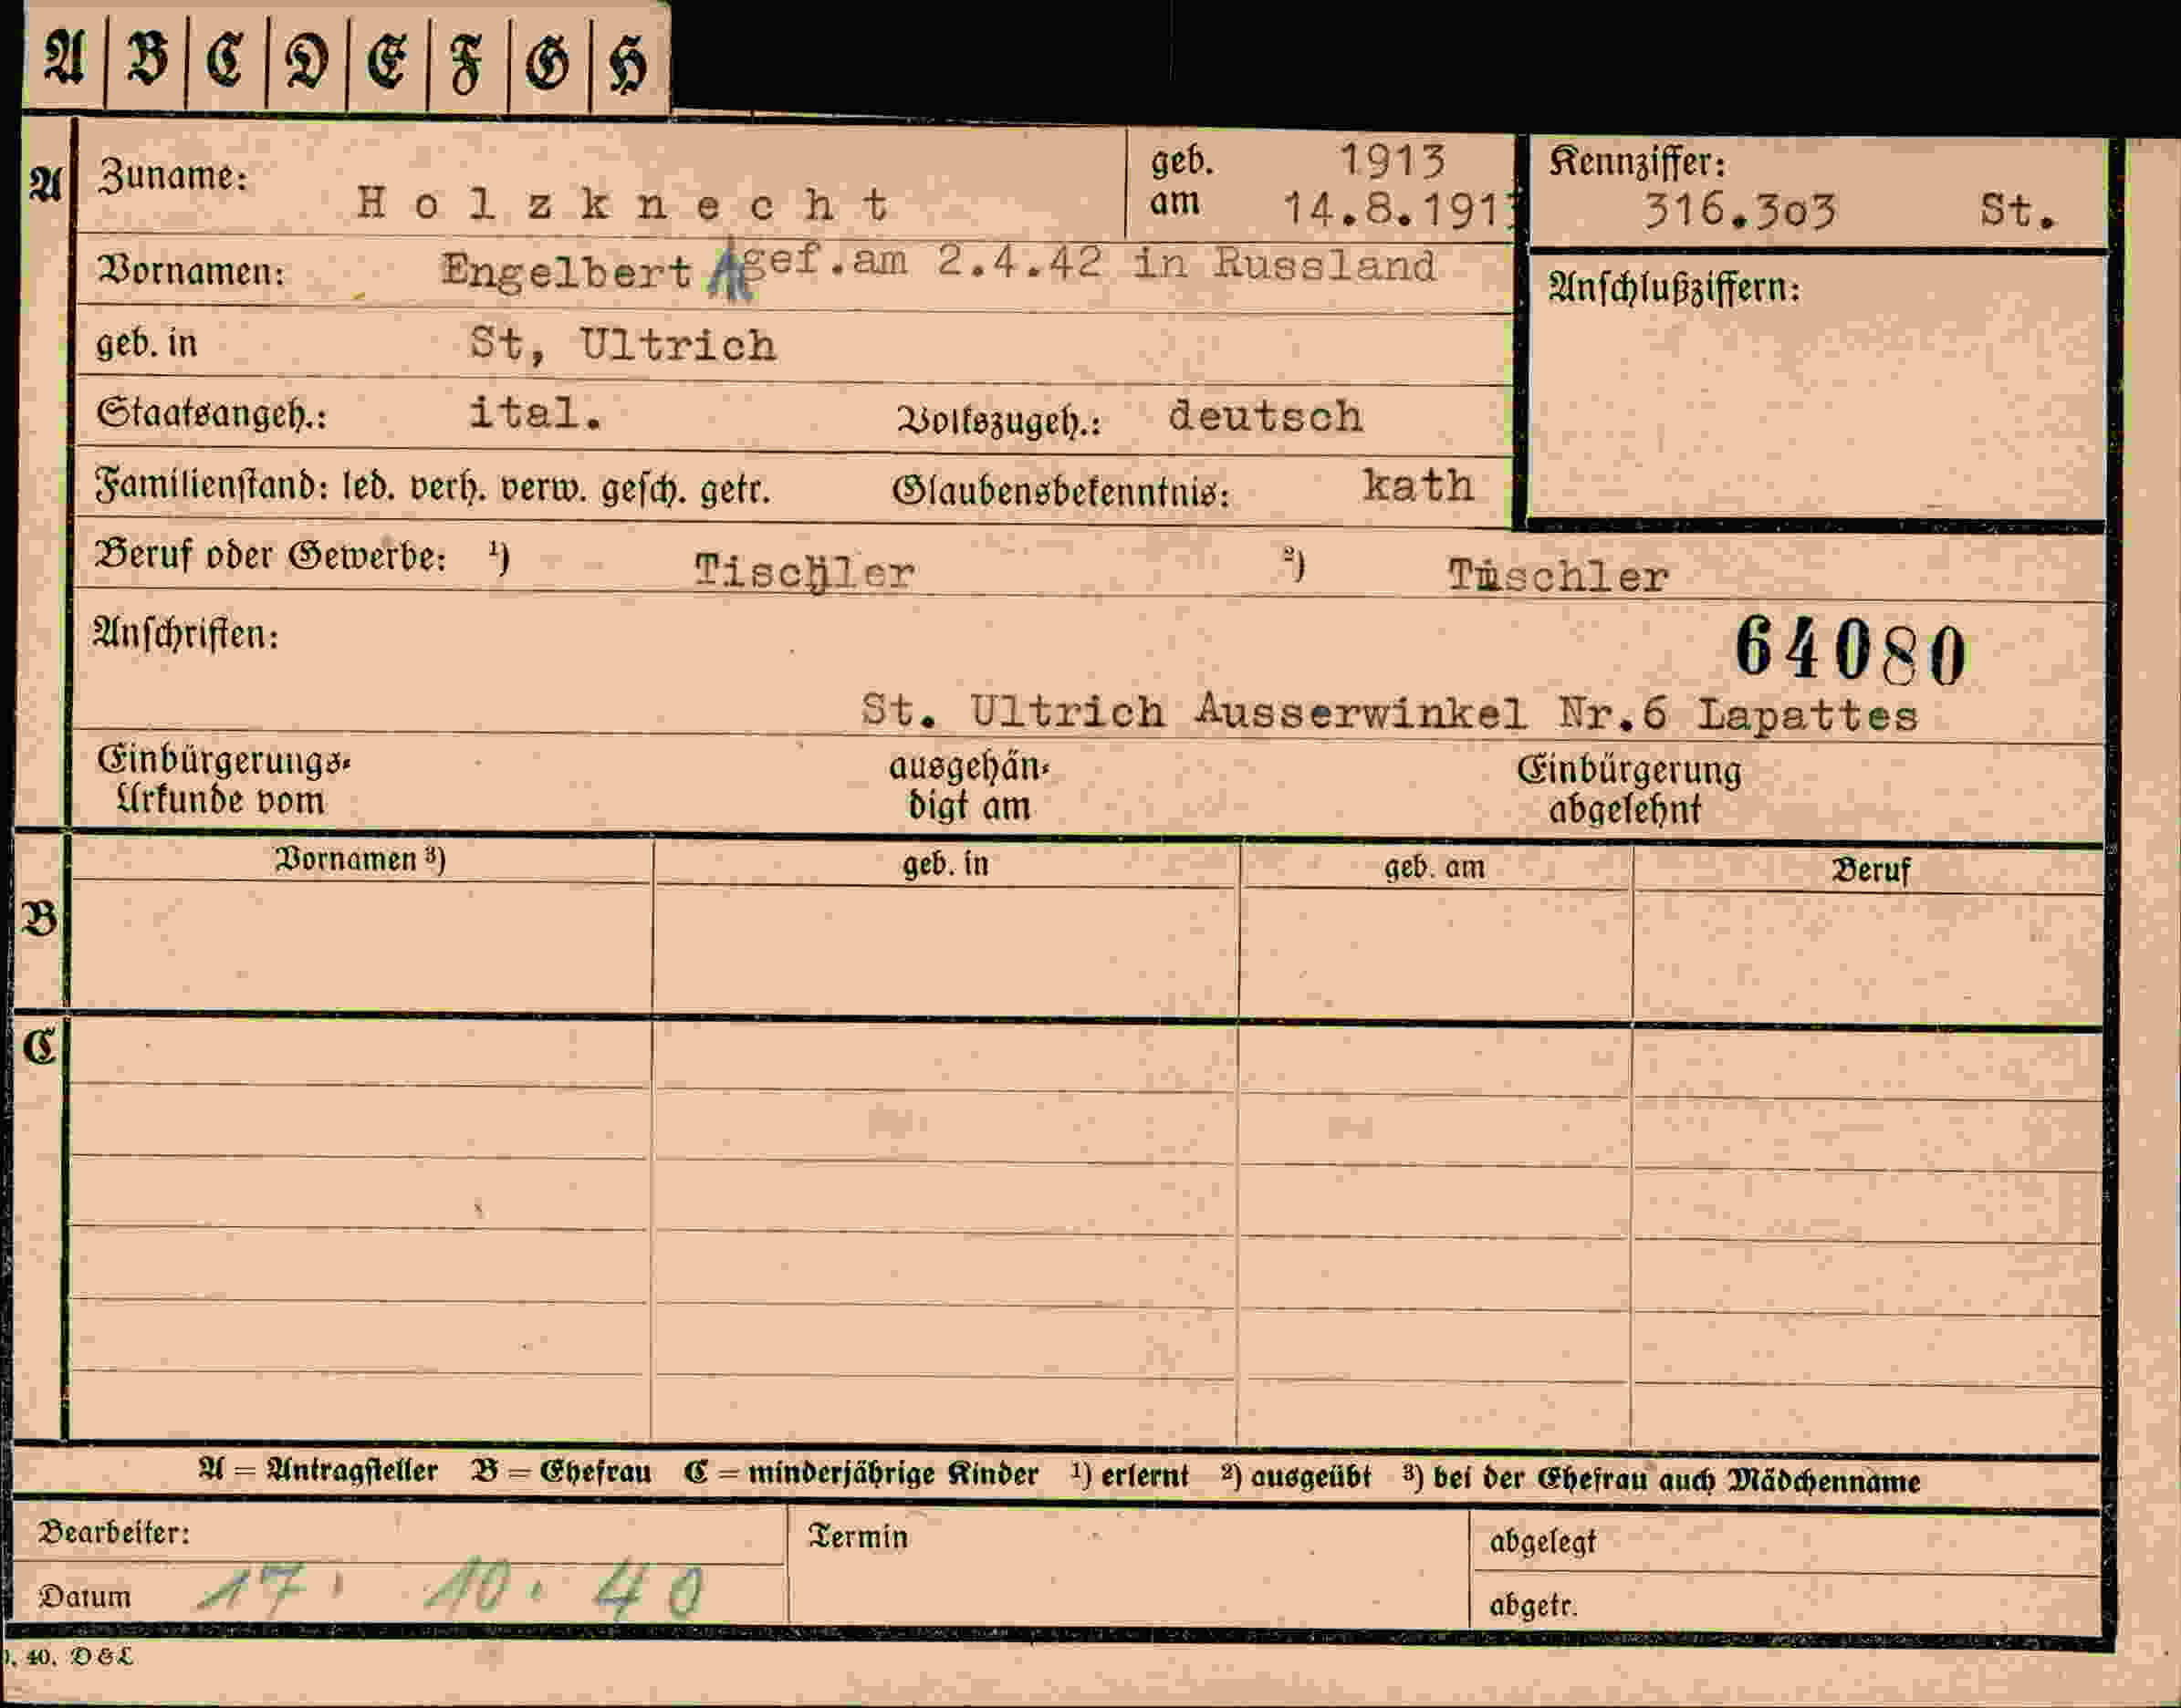 A B C D E F G H
A Zuname: Holzknecht geb. am 1913 14.8.1913 Kennziffer: 316.303 St.
Vornamen: Engelbert gef.am 2.4.42 in Russland Anschlußziffern:
geb. in St, Ultrich
Staatsangeh.: ital. Volkszugeh.: deutsch
Familienstand: led. verh. verw. gesch. getr. Glaubensbekenntnis: kath
Beruf oder Gewerbe: ¹) Tischler ²) Tischler
Anschriften: 64080
St. Ultrich Ausserwinkel Nr.6 Lapattes
Einbürgerungs- ausgehän- Einbürgerung
Urkunde vom digt am abgelehnt
Vornamen ³) geb. in geb. am Beruf
B
C
A = Antragsteller B = Ehefrau C = minderjährige Kinder ¹) erlernt ²) ausgeübt ³) bei der Ehefrau auch Mädchenname
Bearbeiter: Termin abgelegt
Datum 17. 10. 40 abgetr.
40. D&L